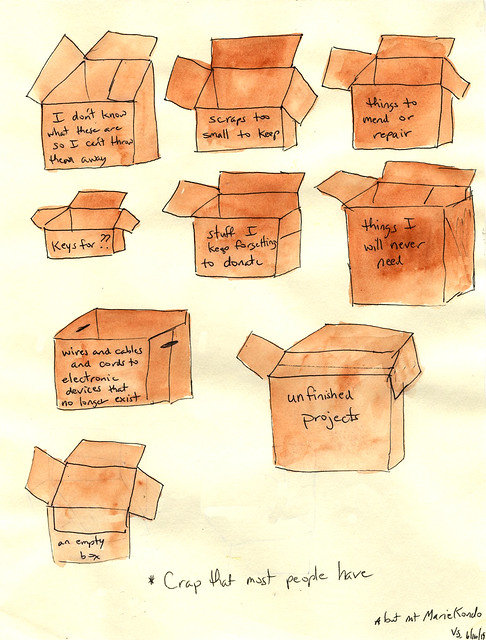 I don't know
what these are
so I can't throw
them away
scraps too
small to keep
things to
mend or
repair
Keys for ??
stuff I
keep forgetting
to donate
things I
will never
need
wires and cables
and cords to
electronic
devices that
no longer exist
unfinished
projects
an empty
box
* Crap that most people have
MarieKondo